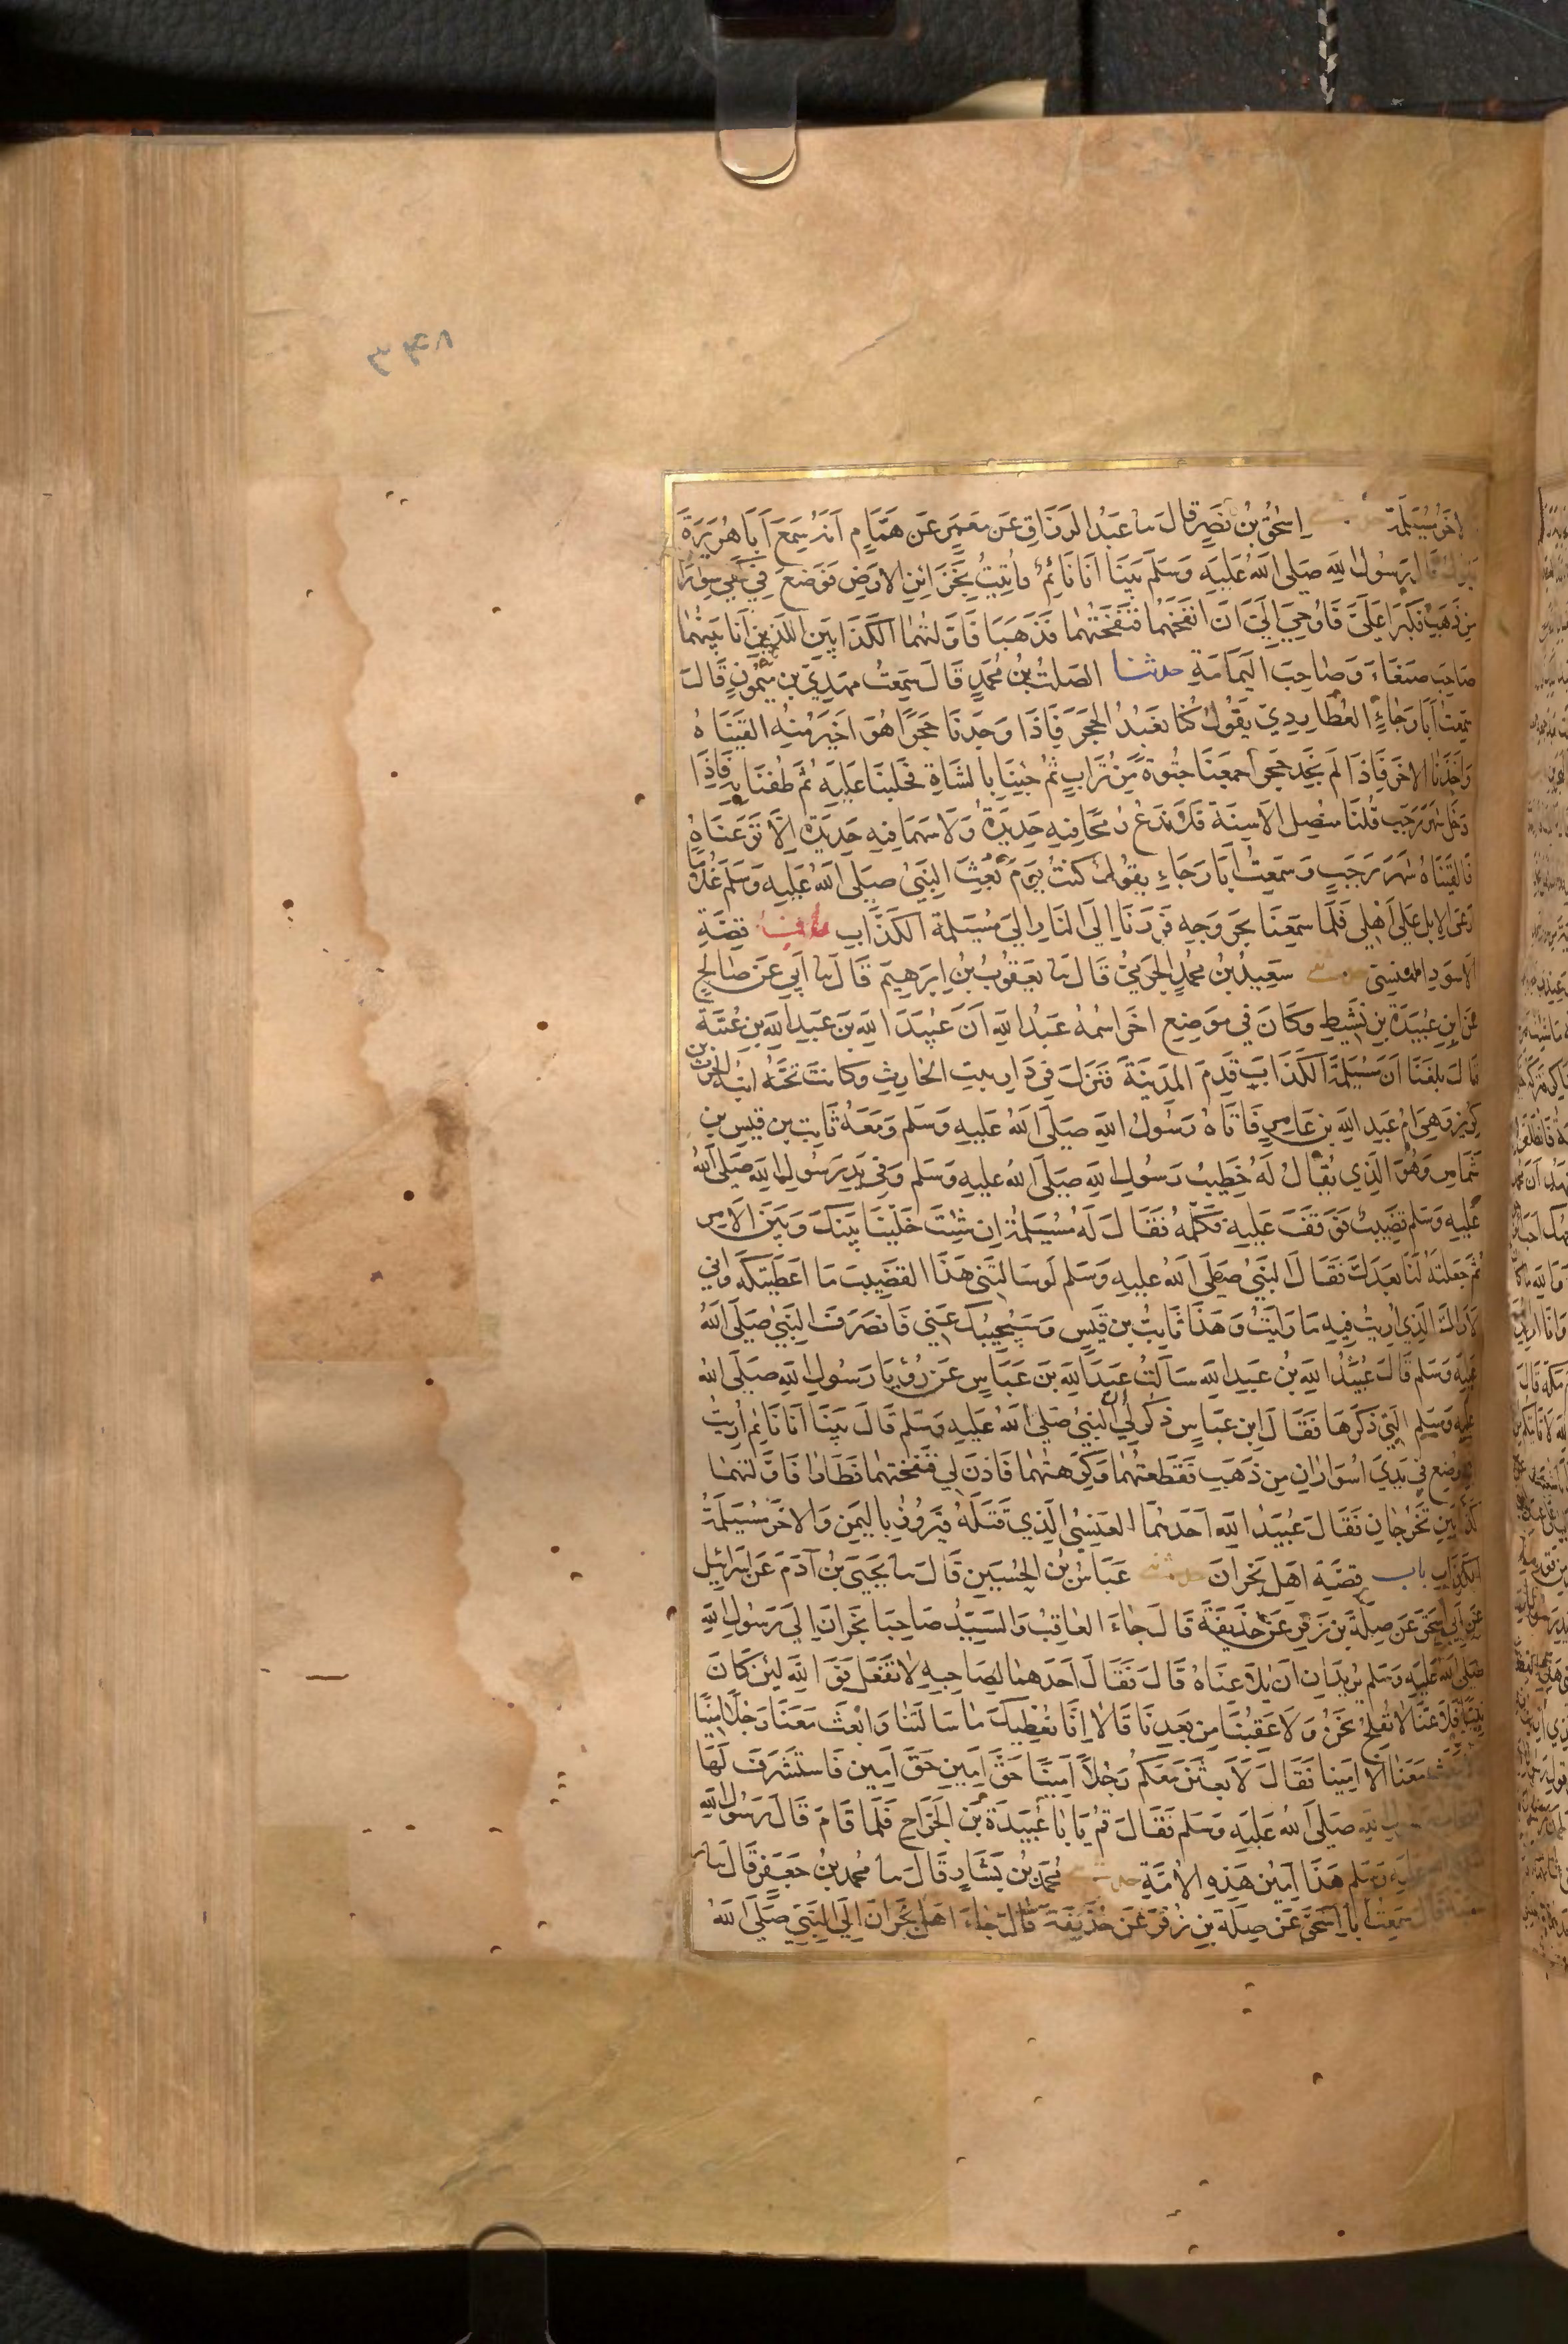 الاخر مسيلمة اسحق بن نصر قال نا عبد الرزاق عن معمر عن همام انه سمع ابا هريرة
يقول قال رسول الله صلى الله عليه وسلم بينا انا نائم فاتيت بخزائن الارض فوضع في كفي سوارا
من ذهب فكبرا علي فاوحي الي ان انفخهما فنفختهما فذهبا فاولتهما الكذابين اللذين انا بينهما
صاحب صنعاء وصاحب اليمامة حدثنا الصلت بن محمد قال سمعت مهدي بن ميمون قال
سمعت ابا رجاء العطاردي يقول كنا نعبد الحجر فاذا وجدنا حجرا هو اخير منه القيناه
واخذنا الاخر فاذا لم نجد حجرا جمعنا جثوة من تراب ثم جينا بالشاة فحلبنا عليه ثم طفنا به فاذا
دخل شهر رجب قلنا منصل الاسنة فلا ندع رمحا فيه حديدة ولا سهما فيه حديدة الا نزعناه
فالقيناه شهر رجب وسمعت ابا رجاء يقول كنت يوم بعث النبي صلى الله عليه وسلم غلاما
ارعى الابل على اهلي فلما سمعنا بخروجه فررنا الى النار الى مسيلمة الكذاب قصة
الاسود العنسي حدثني سعيد بن محمد الجرمي قال نا يعقوب بن ابرهيم قال نا ابي عن صالح
عن ابن عبيدة بن نشيط وكان في موضع اخر اسمه عبد الله ان عبيد الله بن عبد الله بن عتبة
قال بلغنا ان مسيلمة الكذاب قدم المدينة فنزل في دار بنت الحارث وكانت تحته ابنة الحرث بن
كريز وهي ام عبد الله بن عامر فاتاه رسول الله صلى الله عليه وسلم ومعه ثابت بن قيس بن
شماس وهو الذي يقال له خطيب رسول الله صلى الله عليه وسلم وفي يد رسول الله صلى الله
عليه وسلم قضيب فوقف عليه فكلمه فقال له مسيلمة ان شئت خلينا بينك وبين الامر
ثم جعلته لنا بعدك فقال النبي صلى الله عليه وسلم لو سالتني هذا القضيب ما اعطيتكه واني
لاراك الذي اريت فيه ما رايت وهذا ثابت بن قيس وسيجيبك عني فانصرف النبي صلى الله
عليه وسلم قال عبيد الله بن عبد الله سالت عبد الله بن عباس عن رؤيا رسول الله صلى الله
عليه وسلم التي ذكرها فقال ابن عباس ذكر لي ان النبي صلى الله عليه وسلم قال بينا انا نائم اريت
انه وضع في يدي اسواران من ذهب ففظعتهما وكرهتهما فاذن لي فنفختهما فطارا فاولتهما
كذابين تخرجان فقال عبيد الله احدهما العنسي الذي قتله فيروز باليمن والاخر مسيلمة
الكذاب باب قصة اهل نجران حدثني عباس بن الحسين قال نا يحيى بن آدم عن اسرائيل
عن ابي اسحق عن صلة بن زفر عن حذيفة قال جاء العاقب والسيد صاحبا نجران الى رسول الله
صلى الله عليه وسلم يريدان ان يلاعناه قال فقال احدهما لصاحبه لا تفعل فوالله لئن كان
نبيا فلاعنا لا نفلح نحن ولا عقبنا من بعدنا قالا انا نعطيك ما سالتنا وابعث معنا رجلا امينا
ولا تبعث معنا الا امينا فقال لابعثن معكم رجلا امينا حق امين حق امين فاستشرف لها
الله صلى الله عليه وسلم فقال قم يا با عبيدة بن الجراح فلما قام قال رسول الله
عليه وسلم هذا امين هذه الامة حدثني محمد بن بشار قال نا محمد بن جعفر قال نا
قال سمعت ابا اسحق عن صلة بن زفر عن حذيفة قال جاء اهل نجران الى النبي صلى الله